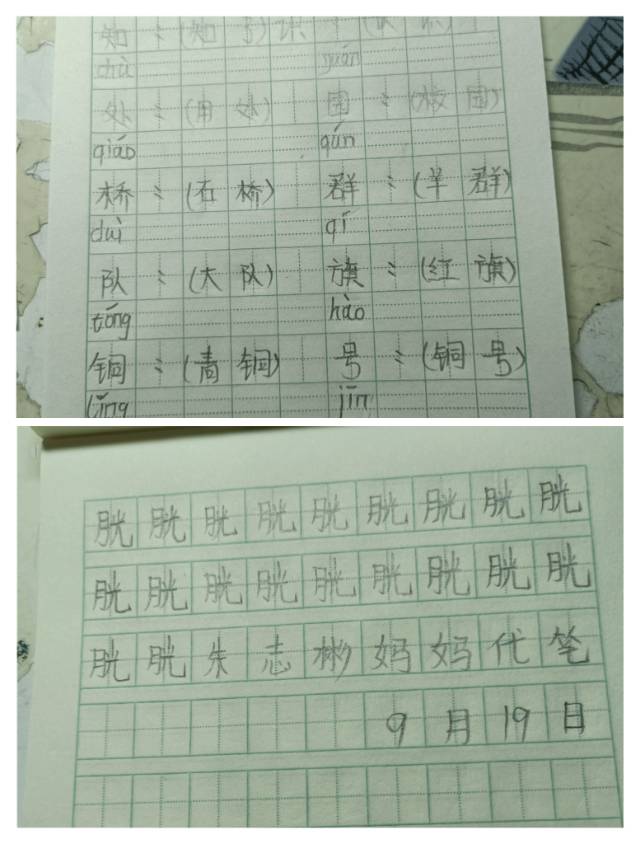 知：(知了)
chù yuán
处：(用处) 园：(校园)
qiáo qún
桥：(石桥) 群：(羊群)
duì qí
队：(大队) 旗：(红旗)
tóng hào
铜：(青铜) 号：(铜号)
jīn
胱胱胱胱胱胱胱胱胱
胱胱胱胱胱胱胱胱胱
胱胱朱志彬妈妈代笔
9月19日